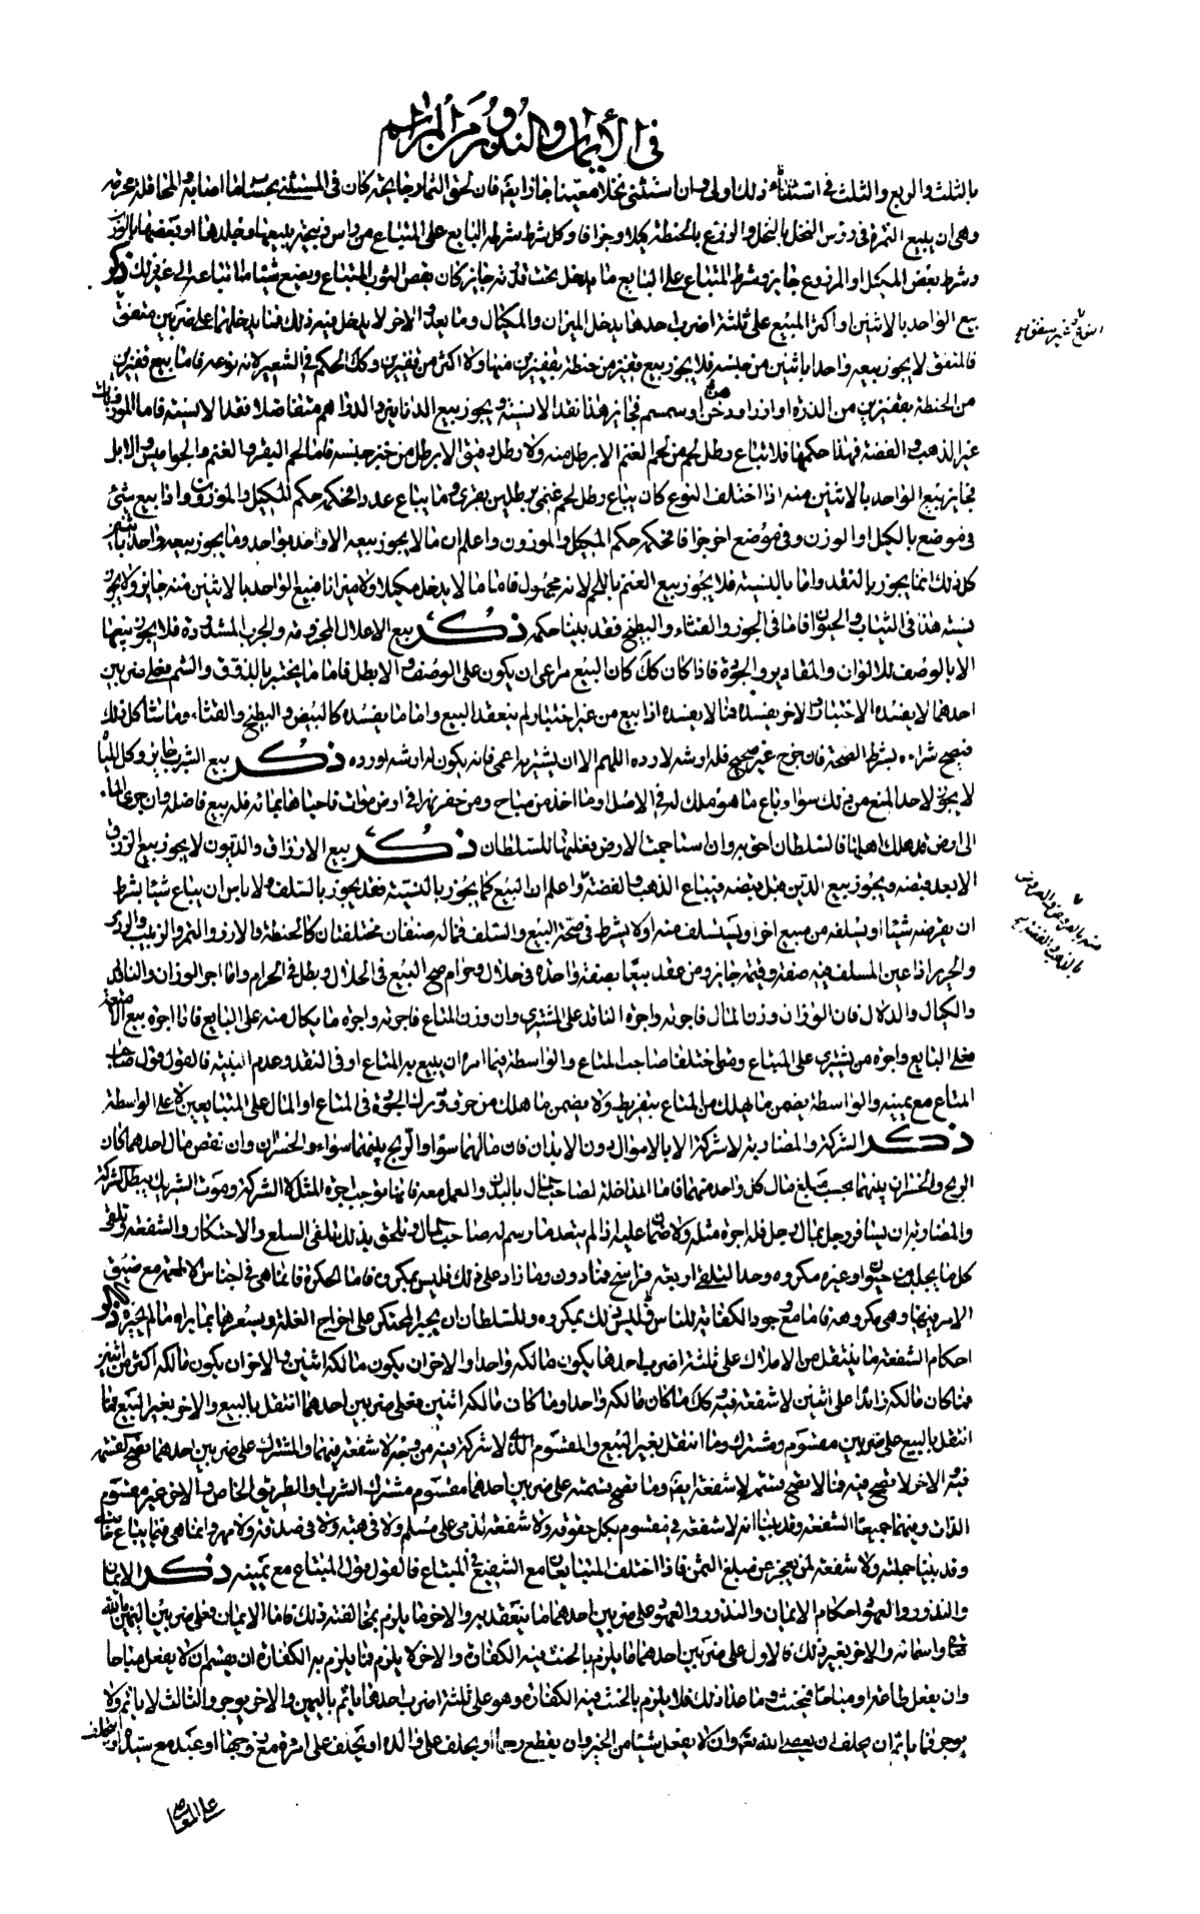 في الأيمان والنذور من المراسم
بالثلث والربع والثلث في استثناء ذلك اولى وان استثنى نخلا معينا جاز ايضا فان لحق الثمار جايحة كان في المستثنى بحساب ما اصابه والمحاقلة محرمة
وهي ان يبيع الثمرة في رؤس النخل بالنخل والزرع بالحنطة كيلا وجزافا وكل شرط شرطه البايع على المبتاع من راس ذبيحة يبيعها وجلدها او بعضها بالوزن
وشرط بعض المكيل او المزروع جايز وشرط المبتاع على البايع ما يدخل تحت قدرته جايز كان يقص الثوب المبتاع ويصبغ شيئا ما ابتاعه الى غير ذلك ذكر
بيع الواحد بالاثنين او اكثر المبيع على ثلثة اضرب احدها يدخل الميزان والمكيال وما يعد والاخر لا يدخل فيه ذلك فما يدخلها على ضربين متفق
فالمتفق لا يجوز بيعه واحدا باثنين من جنسه فلا يجوز بيع قفيز من حنطة بقفيزين منها ولا اكثر من قفيزين وكك الحكم في الشعير لانه نوعه فاما بيع قفيزين
من الحنطة بقفيزين من الذرة او ارز او دخن او سمسم فجايز هذا نقدا لا نسية ويجوز بيع الدنانير والدراهم متفاضلا نقدا لا نسية فاما الموزونات
غير الذهب والفضة فهذا حكمها فلا تباع رطل لحم من لحم الغنم الا برطل منه ولا رطل دقيق الا برطل من خبز جنسه فاما لحم البقر والغنم والجواميس والابل
فجايز بيع الواحد بالاثنين منه اذا اختلف النوع كان يباع رطل لحم غنمي برطلين بقري وما يباع عددا فحكمه حكم المكيل والموزون واذا بيع شئ
في موضع بالكيل او الوزن وفي موضع اخر جزافا فحكمه حكم المكيل والموزون واعلم ان ما لا يجوز بيعه الا واحد بواحد وما يجوز بيعه واحد باثنين
كل ذلك انما يجوز بالنقد واما بالنسية فلا يجوز بيع الغنم باللحم لانه مجهول فاما ما لا يدخل مكيالا ولا ميزانا فبيع الواحد بالاثنين منه جايز ولا يجوز
نسية هذا في الثياب والحيوان فاما في الجوز والقثاء والبطيخ فقد بينا حكمه ذكر بيع الاعدال المحزومة والجرب المشدودة فلا يجوز بيعها
الا بالوصف للالوان والمقادير والجودة فاذا كان كك كان البيع مراعى ان يكون على الوصف والا بطل فاما ما يختبر بالذوق والشم فعلى ضربين
احدهما لا يفسده الاختبار والاخر يفسده فما لا يفسده اذا بيع من غير اختبار لم ينعقد البيع واما ما يفسده كالبيض والبطيخ والقثاء وما شاكل ذلك
فيصح شراءه بشرط الصحة فان خرج غير صحيح فله ارشه لا رده اللهم الا ان يشتريه اعمى فانه يكون له ارشه او رده ذكر بيع الشرب جايز وكل المياه
لا يجوز لاحد المنع من ذلك سواء باع ما هو ملك له في الاصل او ما اخذ من مباح ومن حفر نهرا في ارض موات فاحياها بمائه فله بيع فاضله وان جرى الماء
الى ارض قد هلك اهلها فالسلطان احق به وان استاجمت الارض بغلبتها للسلطان ذكر بيع الارزاق والديون لا يجوز بيع الرزق
الا بعد قبضه ويجوز بيع الدين قبل قبضه فيباع الذهب والفضة واعلم ان البيع كما يجوز بالنسية فقد يجوز بالسلف ولا باس ان يبتاع شيئا بشرط
ان يقرضه شيئا او يسلفه من مبيع اخر او يستسلف منه اولا يشرط في صحة البيع والسلف فما له صنفان مختلفان كالحنطة والارز والتمر والزبيب والدر
والحرير اذا عين المسلف فيه صفة وقيمة جايز ومن عقد بيعا بصفقة واحدة في حلال وحرام صح البيع في الحلال وبطل في الحرام واما اجر الوزان والناقد
والكيال والدلال فان الوزان وزن المال فاجرته واجرة الناقد على المشتري وان وزن المتاع فاجرته واجرة ما يكال منه على البايع فاذا اجرة بيع الامتعة
فعلى البايع واجرة من يشتري على المبتاع ومتى اختلفا صاحب المتاع والواسطة فيما امره ان يبيع به المتاع او في النقد وعدم البينة فالقول قول صاحب
المتاع مع يمينه والواسطة يضمن ما يهلك من المتاع بتفريط ولا يضمن ما هلك من حرز ودرك الجودة في المتاع او المال على المتبايعين لا على الواسطة
ذكر الشركة والمضاربة لا شركة الا بالاموال دون الابدان فان مالهما سواء والربح بينهما سواء والخسران وان نقص مال احدهما كان
الربح والخسران بينهما بحسب مبلغ مال كل واحد منهما فاما المداخلة لصاحب المال بالبدن والعمل معه فانما توجب اجرة المثل لا الشركة وموت الشريك يبطل الشركة
والمضاربة ان يسافر رجل بمال رجل فله اجرة مثله ولا ضمان عليه اذا لم يتعد ما رسم له صاحب المال ويلحق بذلك تلقي السلع والاحتكار والشفعة وتلقي
كل ما يجلب من حيوان او غيره مكروه وحد التلقي اربعة فراسخ فما دون وما زاد على ذلك فليس بمكروه فاما الحكرة فانما هي في اجناس الاطعمة مع ضيق
الامر فيها وهي مكروهة فاما مع وجود الكفاية للناس فليس ذلك بمكروه وللسلطان ان يجبر المحتكر على اخراج الغلة ويسعرها بما يراه ما لم يخسره ذكر
احكام الشفعة ما ينتقل من الاملاك على ثلثة اضرب احدها يكون مالكه واحدا والاخر ان يكون مالكه اثنين والاخر ان يكون مالكه اكثر من اثنين
فما كان مالكه زائدا على اثنين لا شفعة فيه وكك ما كان مالكه واحدا وما كان مالكه اثنين فعلى ضربين احدهما انتقل بالبيع والاخر بغير البيع فما
انتقل بالبيع على ضربين مقسوم ومشترك وما انتقل بغير البيع والمقسوم الذي لا شركة فيه من وجه لا شفعة فيهما والمشترك على ضربين احدهما تصح القسمة
فيه والاخر لا تصح فيه فما لا تصح قسمته لا شفعة ايضا وما تصح قسمته على ضربين احدهما مقسوم مشترك الشرب والطريق الخاص والاخر غير مقسوم
الذات وفيهما جميعا الشفعة وقد بينا انه لا شفعة في مقسوم بكل حقوقه ولا شفعة لذمي على مسلم ولا في هبة ولا في صدقة ولا مهر وانما هي فيما يباع خاصة
وقد بينا جملته ولا شفعة لمن يعجز عن مبلغ الثمن فاذا اختلف المتبايعان مع الشفيع في المبتاع فالقول قول المبتاع مع يمينه ذكر الايمان
والنذور والعهود احكام الايمان والنذور والعهود على ضربين احدهما ما ينعقد به والاخر ما يلزم بمخالفته ذلك فاما الايمان فعلى ضربين اليمين بالله
تعالى واسمائه والاخر بغير ذلك فالاول على ضربين احدهما ما يلزم بالحنث فيه الكفارة والاخر لا يلزم فما يلزم به الكفارة ان يقسم ان لا يفعل مباحا
وان يفعل طاعة او مباحا فيحنث وما عدا ذلك فلا يلزم بالحنث فيه الكفارة وهو على ثلثة اضرب احدها ياثم باليمين والاخر يوجر والثالث لا ياثم ولا
يوجر فما ياثم ان يحلف ان يعصي الله تعالى وان لا يفعل شيئا من الخير وان يقطع رحما او يحلف على والده او تحلف على امرة مع زوجها او عبد مع سيده او يحلف
على المعاصي